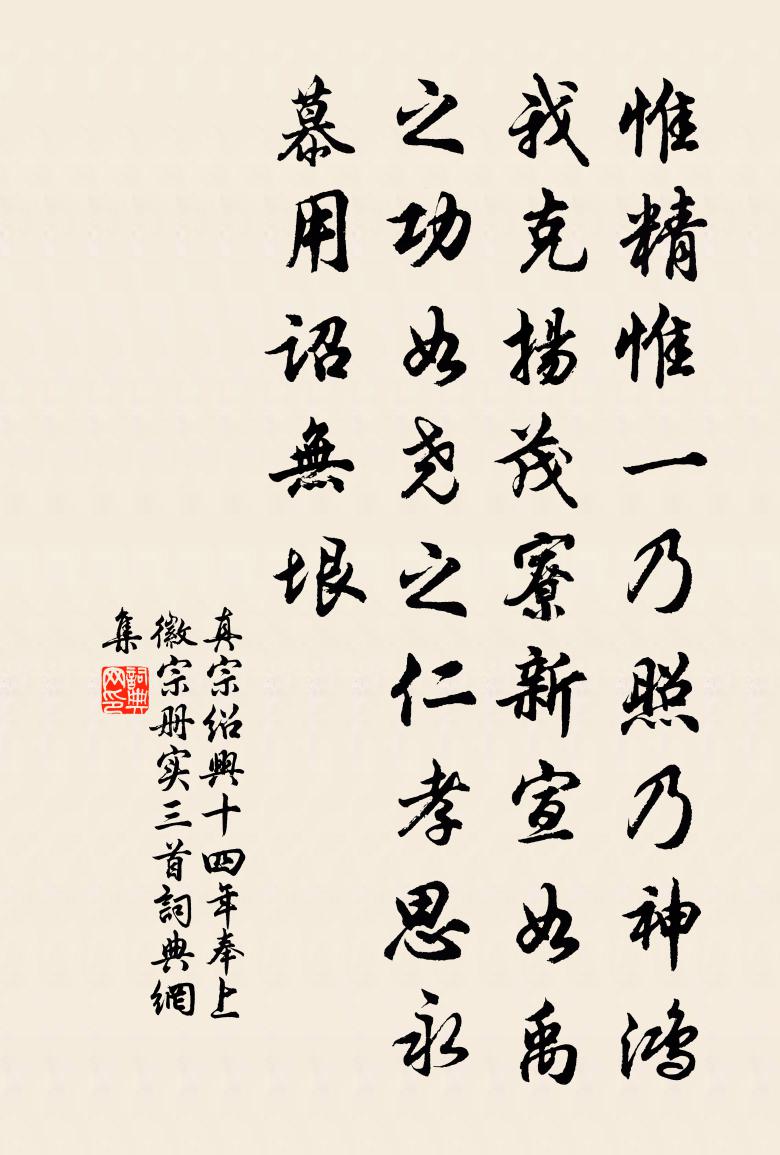 惟精惟一乃照乃神鸿
我克揚茂寮新宣如禹
之功如尧之仁孝思永
慕用詔無垠
真宗绍興十四年奉上
徽宗册实三首詞典網
集
詞典网印